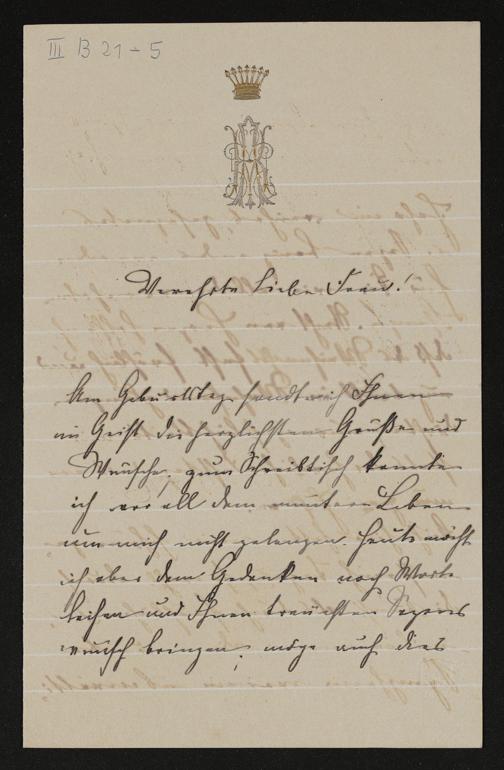 III B 21-5
Verehrte liebe Frau!
Am Geburtstage sandte ich Ihnen
im Geist die herzlichsten Grüße und
Wünsche, zum Schreibtisch konnte
ich vor all dem muntern Leben
um mich nicht gelangen. Heute möcht
ich aber dem Gedanken noch Worte
leihen und Ihnen treuesten Segens
wunsch bringen; möge auch dies